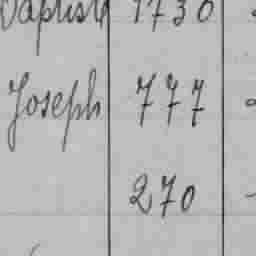 Baptiste 1730
Joseph 777
270